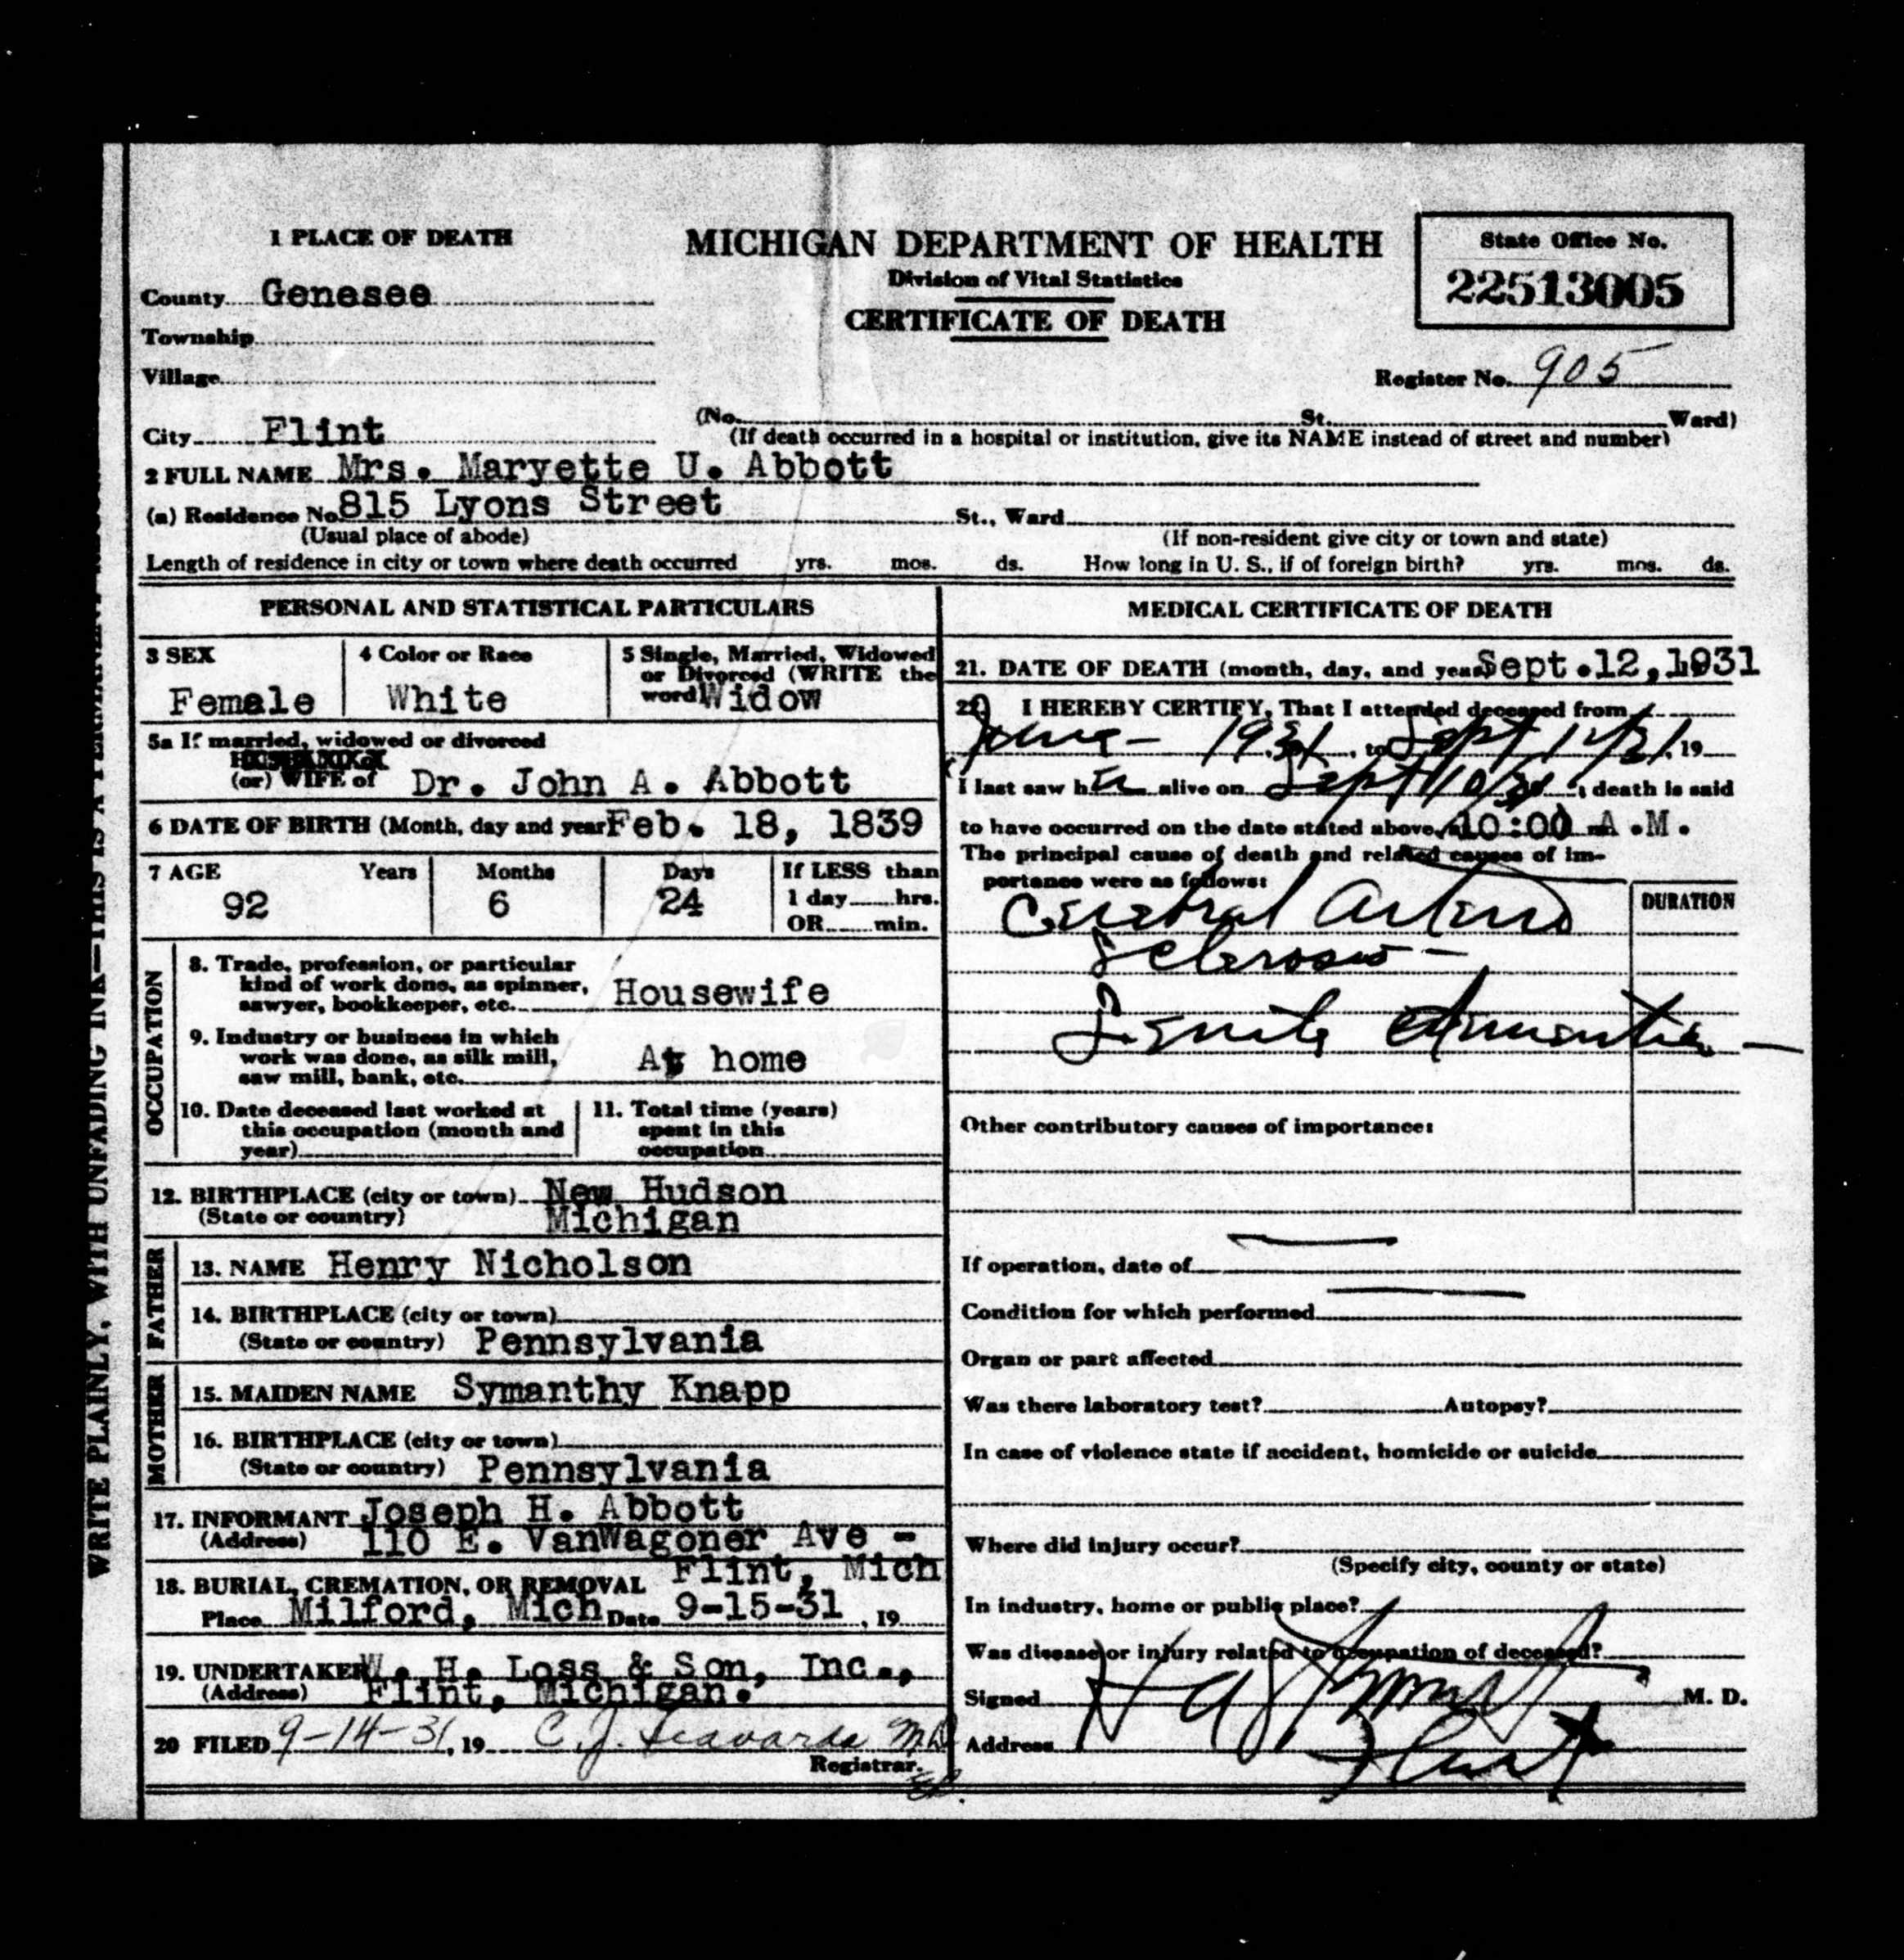 1 PLACE OF DEATH
County Genesee
Township
Village
City Flint
MICHIGAN DEPARTMENT OF HEALTH
Division of Vital Statistics
CERTIFICATE OF DEATH
State Office No.
22513005
Register No. 905
(No. St. Ward)
(If death occurred in a hospital or institution, give its NAME instead of street and number)
2 FULL NAME Mrs. Maryette U. Abbott
(a) Residence No. 815 Lyons Street St., Ward
(Usual place of abode) (If non-resident give city or town and state)
Length of residence in city or town where death occurred yrs. mos. ds. How long in U. S., if of foreign birth? yrs. mos. ds.
PERSONAL AND STATISTICAL PARTICULARS
3 SEX
Female
4 Color or Race
White
5 Single, Married, Widowed
or Divorced (WRITE the
word) Widow
5a If married, widowed or divorced
(or) WIFE of Dr. John A. Abbott
6 DATE OF BIRTH (Month, day and year) Feb. 18, 1839
7 AGE Years Months Days If LESS than
92 6 24 1 day hrs.
OR min.
OCCUPATION
8. Trade, profession, or particular
kind of work done, as spinner,
sawyer, bookkeeper, etc. Housewife
9. Industry or business in which
work was done, as silk mill,
saw mill, bank, etc. At home
10. Date deceased last worked at
this occupation (month and
year)
11. Total time (years)
spent in this
occupation
12. BIRTHPLACE (city or town) New Hudson
(State or country) Michigan
FATHER
13. NAME Henry Nicholson
14. BIRTHPLACE (city or town)
(State or country) Pennsylvania
MOTHER
15. MAIDEN NAME Symanthy Knapp
16. BIRTHPLACE (city or town)
(State or country) Pennsylvania
17. INFORMANT Joseph H. Abbott
(Address) 110 E. VanWagoner Ave -
Flint, Mich
18. BURIAL, CREMATION, OR REMOVAL
Place Milford, Mich Date 9-15-31, 19
19. UNDERTAKER W. H. Loss & Son, Inc.,
(Address) Flint, Michigan.
20 FILED 9-14-31, 19 C. J. M.D.
Registrar.
MEDICAL CERTIFICATE OF DEATH
21. DATE OF DEATH (month, day, and year) Sept.12,1931
22) I HEREBY CERTIFY, That I attended deceased from
June - 1931, to Sept 12/31, 19
I last saw her alive on Sept 10/31, death is said
to have occurred on the date stated above, at 10:00 A.M.
The principal cause of death and related causes of im-
portance were as follows:
DURATION
Cerebral Arterio
Sclerosis -
Senile dementia -
Other contributory causes of importance:
If operation, date of
Condition for which performed
Organ or part affected
Was there laboratory test? Autopsy?
In case of violence state if accident, homicide or suicide
Where did injury occur?
(Specify city, county or state)
In industry, home or public place?
Was disease or injury related to occupation of deceased?
Signed M. D.
Address Flint
WRITE PLAINLY, WITH UNFADING INK—THIS IS A PERMANENT